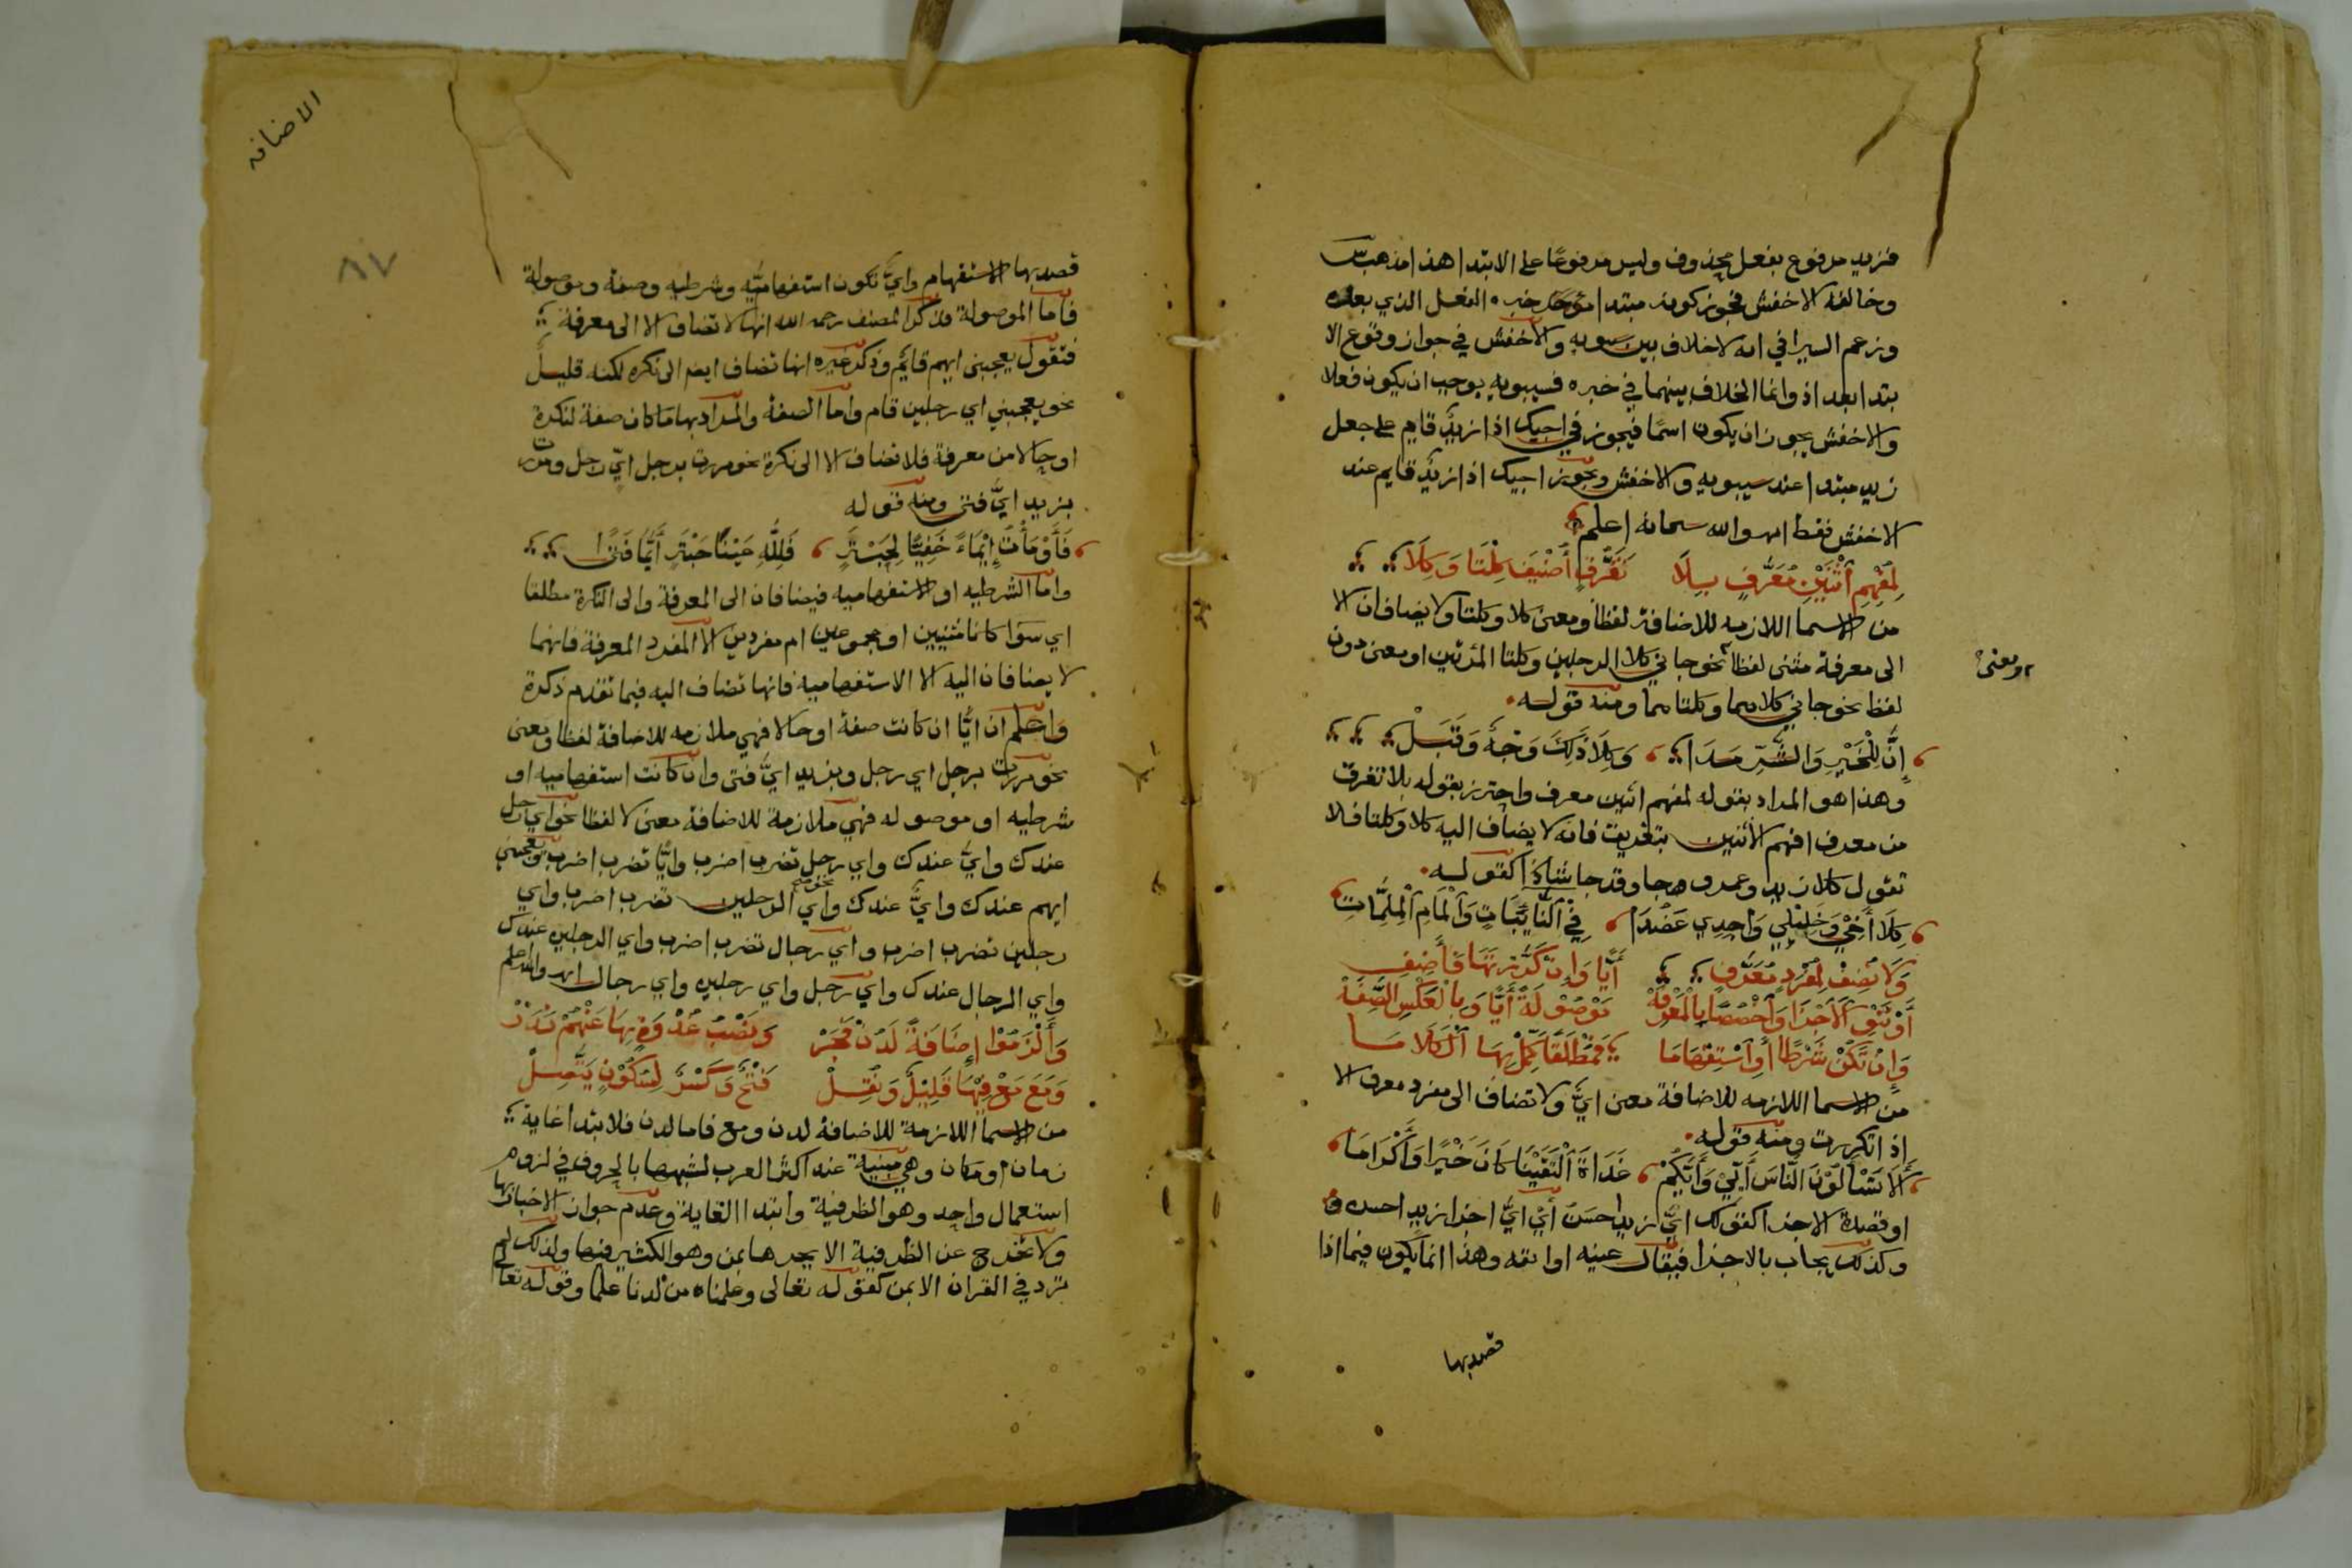 فزيد مرفوع بفعل محذوف وليس مرفوعًا على الابتدا هذا مذهب س
وخالفه الاخفش فجوز كونه مبتدا موخر خبره الفعل الذي بعده
وزعم السيرافي انه لا خلاف بين سيبويه والاخفش في جواز وقوع الا
بتدا بعد اذ وانما الخلاف بينهما في خبره فسيبويه يوجب ان يكون فعلا
والاخفش يجوز ان يكون اسمًا فيجوز في اجيك اذا زيدٌ قايم على جعل
زيد مبتدا عند سيبويه والاخفش ويجوز اجيك اذا زيدٌ قايم عند
الاخفش فقط اه والله سبحانه اعلم
لِمُفْهِمِ ٱثْنَيْنِ مُعَرَّفٍ بِلَا تَفَرُّقٍ أُضْيِفَ كِلْتَا وَكِلَا
من الاسما اللازمه للاضافة لفظا ومعنى كلا وكلتا ولا يضافان الا
الى معرفة مثنى لفظا نحو جاني كلا الرجلين وكلتا المرتين او معنى دون
ومعنى
لفظ نحو جاني كلاهما وكلتاهما ومنه قوله
إِنَّ لِلْخَيْرِ وَالشَّرِّ مَدَا وَكِلَا ذَلِكَ وَجْهٌ وَقَبَلْ
وهذا هو المراد بقوله لمفهم اثنين معرف واحترز بقوله بلا تفرق
من معرف افهم الاثنين بتفريق فانه لا يضاف اليه كلا وكلتا فلا
تقول كلا زيد وعمرو جا وقد جا شاذا كقوله
كِلَا أَخِيْ وَخَلِيْلِي وَاجِدِي عَضُدَا فِيْ ٱلنَّايِبَاتِ وَٱلْمَامِ ٱلْمُلِمَّاتِ
وَلَا تُضِفْ لِمُفْرَدٍ مُعَرَّفٍ أَيًّا وَإِنْ كَرَّرْتَهَا فَأَضِفِ
أَوْ تَنْوِ ٱلْاَجْزَا وَٱخْصُصًا بِالْمَعْرِفَهْ مَوْصُوْلَةً أَيًّا وَبِالْعَكْسِ الصِّفَهْ
وَإِنْ تَكُنْ شَرْطًا أَوِ ٱسْتِفْهَامَا فَمُطْلَقًا كَمِّلْ بِهَا ٱلْكَلَامَا
من الاسما اللازمه للاضافة معنى ايٌّ ولا تضاف الى مفرد معرف الا
اذا تكررت ومنه قوله
أَلَا تَسْأَلُوْنَ النَّاسَ أَيِّيْ وَأَيُّكُمْ غَدَاةَ ٱلْتَقَيْنَا كَانَ خَيْرًا وَأَكْرَامَا
او قصدة الاجزا كقولك ايُّ زيد احسن أيْ ايُّ اجزا زيد احسن
وكذلك يجاب بالاجزا فيقال عينه او انفه وهذا انما يكون فيما اذا
قصد بها
الاضافه
٨٧
قصد بها الاستفهام وايٌّ تكون استفهاميّه وشرطيه وصفة وموصولة
فاما الموصولة فذكر المصنف رحمه الله انها لا تضاف الا الى معرفة
فتقول يعجبنى ايهم قايم وذكر غيره انها تضاف ايضا الى نكره لكنه قليل
نحو يعجبني اي رجلين قام واما الصفة والمراد بها ما كان صفة لنكرة
او حالا من معرفة فلا تضاف الا الى نكرة نحو مررت برجل ايّ رجل ومررت
بزيد ايَّ فتى ومنه قوله
فَأَوْمَأْتُ إِيْمَاءً خَفِيًّا لِحَبْتَرٍ فَلِلّٰهِ عَيْنَا حَبْتَرٍ أَيَّمَا فَتًى
واما الشرطيه او الاستفهاميه فيضافان الى المعرفة والى النكرة مطلقا
اي سوا كانا مثنيين او مجموعين ام مفردين الا المفرد المعرفة فانهما
لا يضافان اليه الا الاستفهاميه فانها تضاف اليه فيما تقدم ذكره
واعلم ان ايًّا ان كانت صفة او حالا فهي ملازمه للاضافة لفظا ومعنى
نحو مررت برجل اي رجل وبزيد ايَّ فتى وان كانت استفهاميه او
شرطيه او موصوله فهي ملازمة للاضافة معنى لا لفظا نحو اي رجل
عندك وايٌّ عندك واي رجل تضرب اضرب وايًّا تضرب اضرب ويعجبني
ايهم عندك وايٌّ عندك نحو واي الرجلين تضرب اضرب واي
رجلين تضرب اضرب واي رجال تضرب اضرب واي الرجلين عندك
واي الرجال عندك واي رجل واي رجلين واي رجال اه والله اعلم
وَأَلْزَمُوْا إِضَافَةً لَدُنْ فَجَرْ وَنَصْبُ غُدْوَةٍ بِهَا عَنْهُمْ نَدَرْ
وَمَعَ مَعْ فِيْهَا قَلِيْلٌ وَنُقِلْ فَتْحٌ وَكَسْرٌ لِسُكُوْنٍ يَتَّصِلْ
من الاسما اللازمة للاضافة لدن ومع فاما لدن فلابتدا غاية
زمان او مكان وهي مبنية عند اكثر العرب لشبهها بالحروف في لزوم
استعمال واحد وهو الظرفية وابتدا الغاية وعدم جواز الاخبار بها
ولا تخرج عن الظرفية الا بجرها بمن وهو الكثير فيها ولذلك لم
ترد في القران الا بمن كقوله تعالى وعلمناه من لدنا علما وقوله تعالى